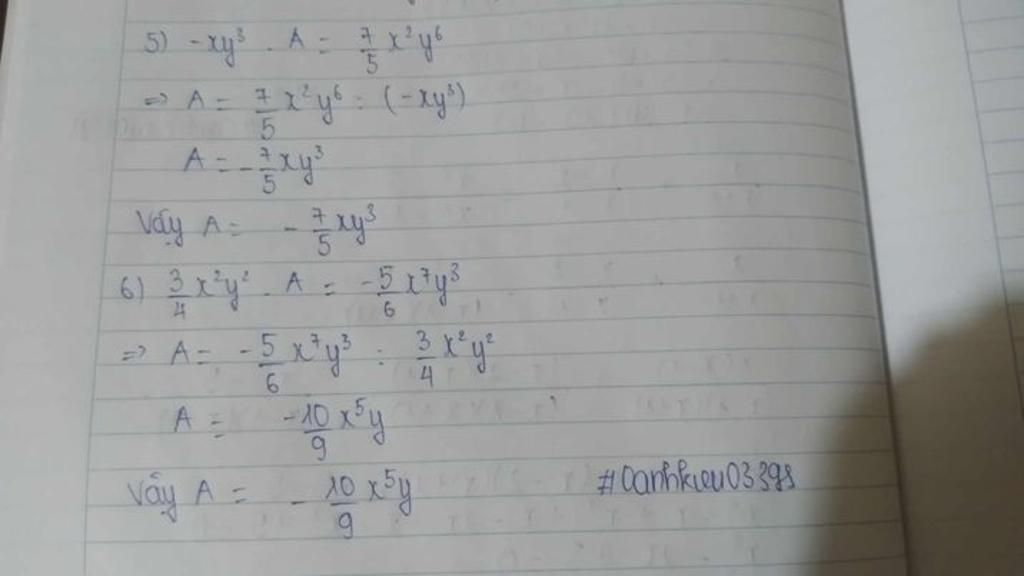 5) -xy³ . A = 7/5 x²y⁶
=> A = 7/5 x²y⁶ : (-xy³)
A = -7/5 xy³
Vậy A = -7/5 xy³
6) 3/4 x²y² . A = -5/6 x⁷y³
=> A = -5/6 x⁷y³ : 3/4 x²y²
A = -10/9 x⁵y
Vậy A = -10/9 x⁵y